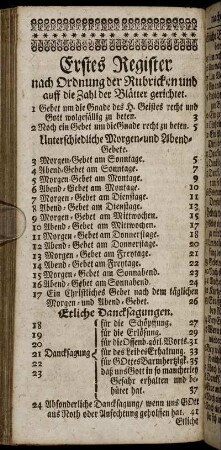 Erstes Register
nach Ordnung der Rubricken und
auff die Zahl der Blätter gerichtet.
1 Gebet um die Gnade des H. Geistes recht und
Gott wolgefällig zu beten. 3
2 Noch ein Gebet um die Gnade recht zu beten. 5
Unterschiedliche Morgen-und Abend-
Gebete.
3 Morgen-Gebet am Sonntage. 5
4 Abend-Gebet am Sonntage. 7
5 Morgen-Gebet am Montage. 9
6 Abend-Gebet am Montage. 10
7 Morgen-Gebet am Dienstage. 11
8 Abend-Gebet am Dienstage. 13
9 Morgen-Gebet am Mittwochen. 15
10 Abend-Gebet am Mittwochen. 17
11 Morgen-Gebet am Donnerstage. 18
12 Abend-Gebet am Donnerstage. 20
13 Morgen-Gebet am Freytage. 21
14 Abend-Gebet am Freytage. 22
15 Morgen-Gebet am Sonnabend. 23
16 Abend-Gebet am Sonnabend. 24
17 Ein Christliches Gebet nach dem täglichen
Morgen-und Abend-Gebet. 26
Etliche Dancksagungen.
18 für die Schöpffung. 27
19 für die Erlösung. 29
20 für die Offenb. götl. Worts. 31
21 Dancksagung für des Leibes Erhaltung. 33
22 für GOttes Barmhertzigk. 35
23 daß uns Gott in so mancherley
Gefahr erhalten und be-
hütet hat. 37
24 Absonderliche Dancksagung/ wenn uns GOtt
aus Noth oder Anfechtung geholffen hat. 41
Etliche